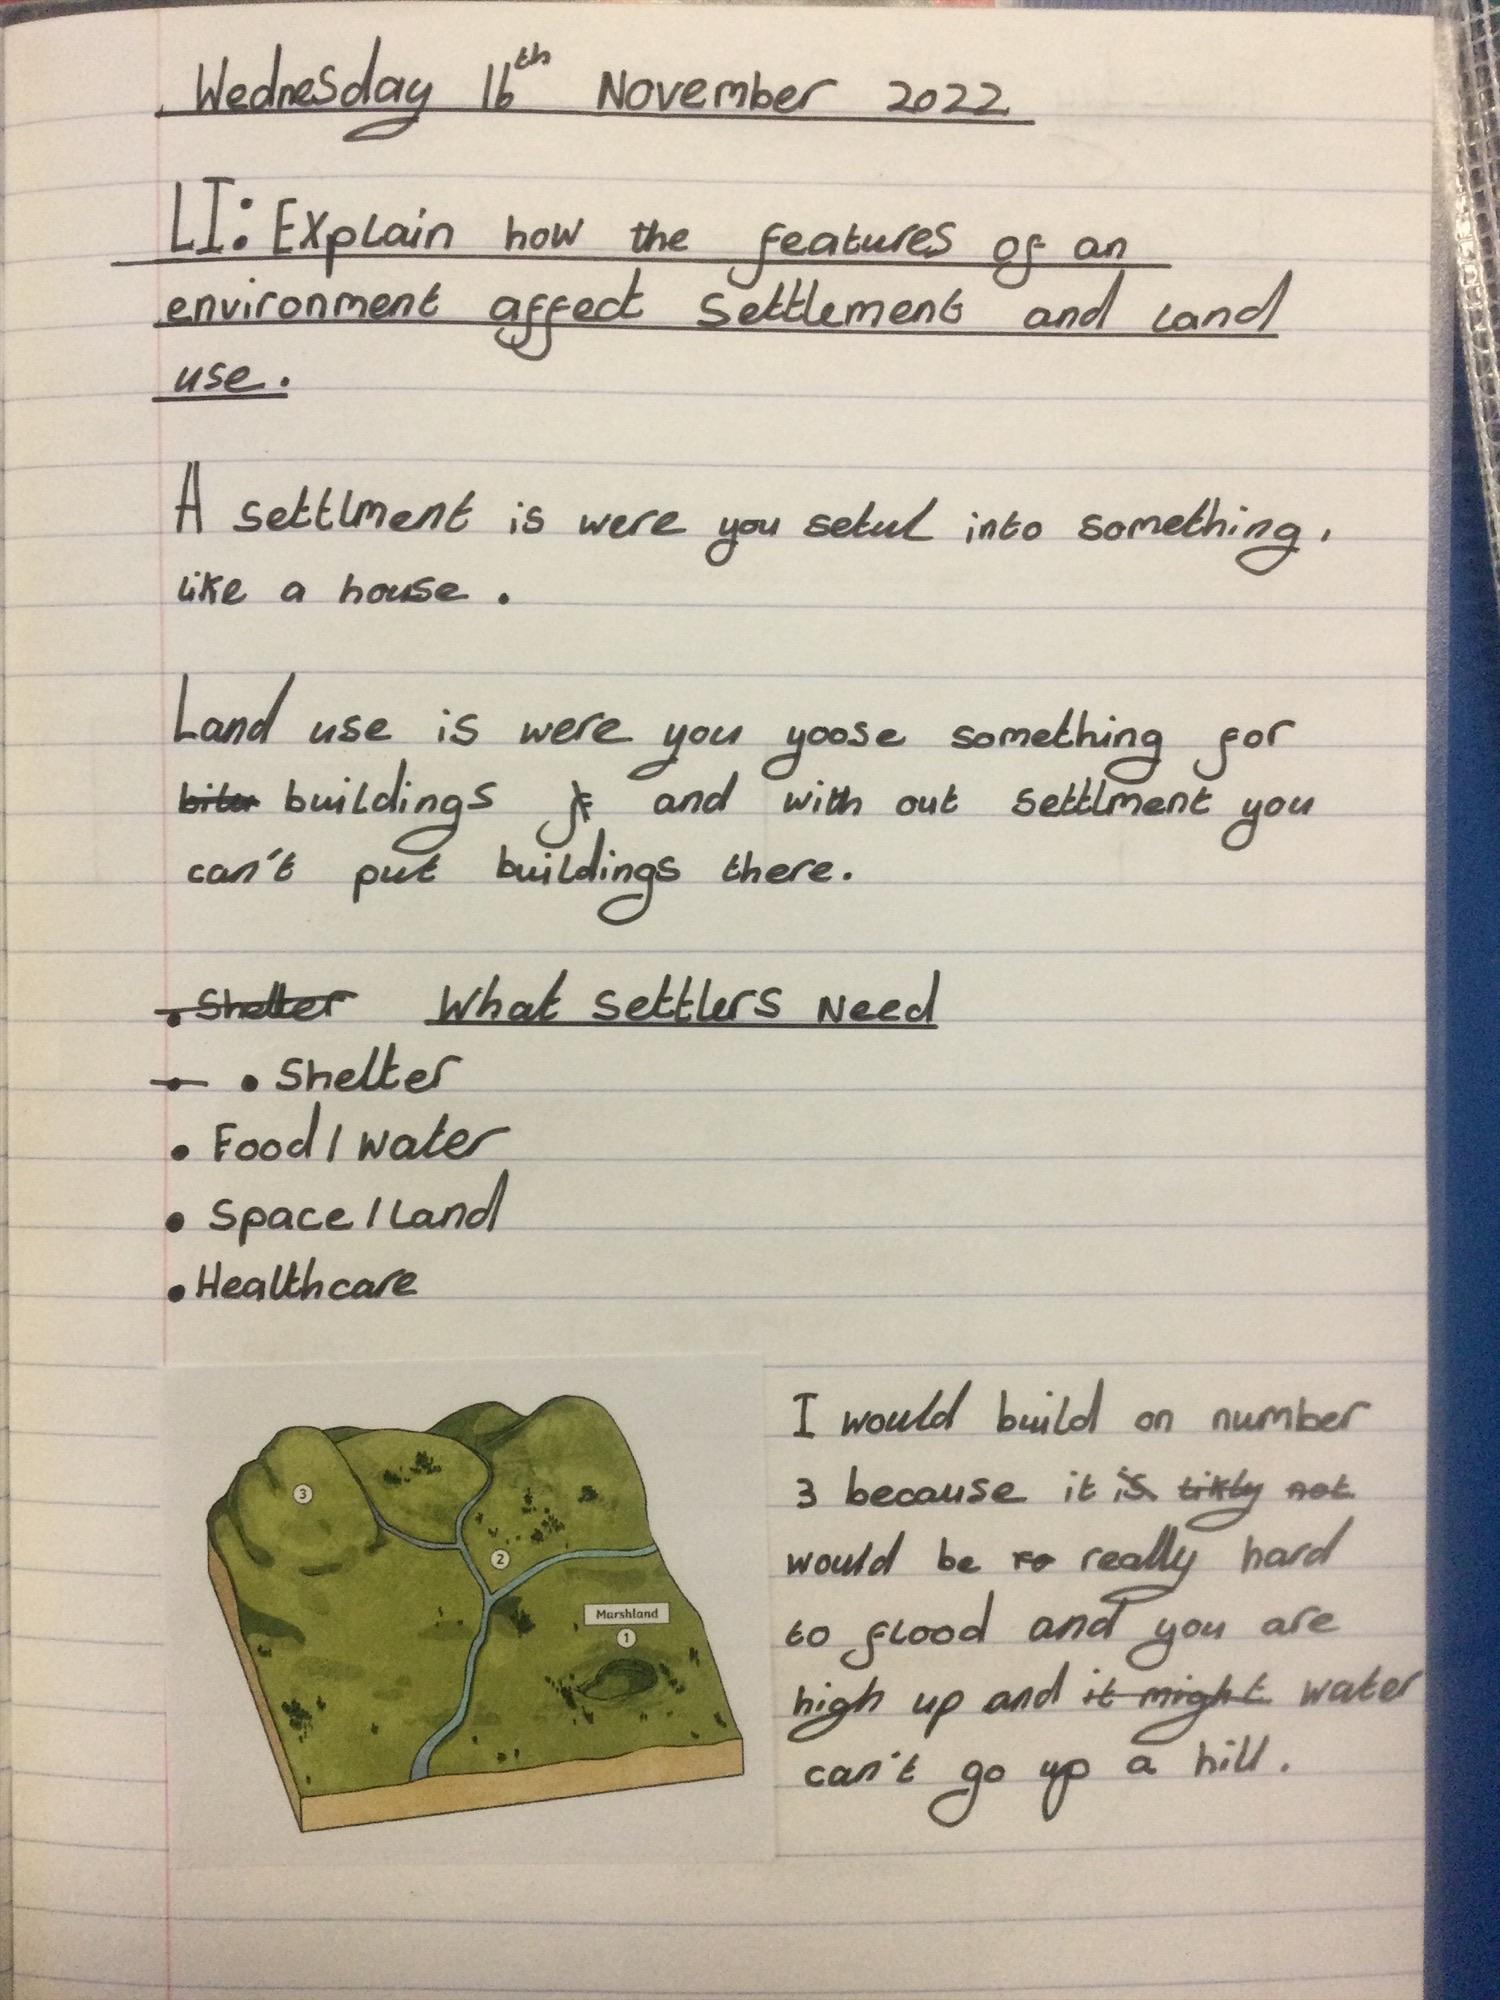 Wednesday 16th November 2022
LI: Explain how the features of an
environment affect settlement and land
use.
A settlment is were you setul into something,
like a house.
Land use is were you yoose something for
buildings and with out settlment you
can't put buildings there.
• Shelter What settlers Need
• Shelter
• Food/water
• Space/Land
• Healthcare
3
2
Marshland
1
I would build on number
3 because it is likly not
would be really hard
to flood and you are
high up and it might water
can't go up a hill.